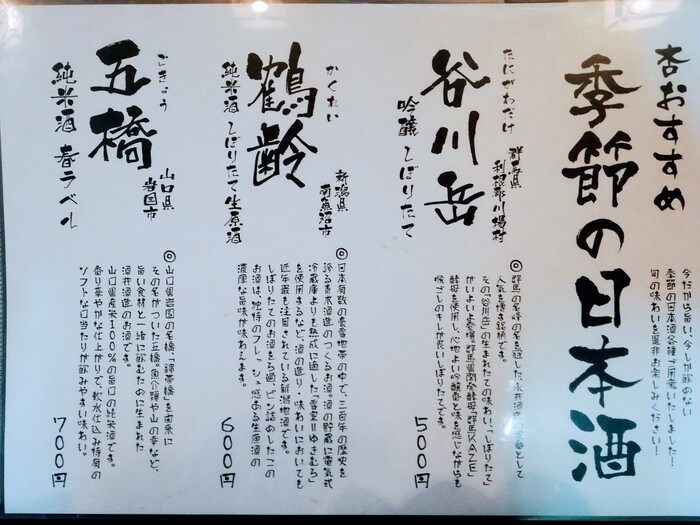 杏おすすめ
季節の日本酒
今だから旨い、今しか飲めない
季節の日本酒各種ご用意いたしました！
旬の味わいを是非お楽しみください！
たにがわだけ
谷川岳
吟醸 しぼりたて
群馬県
利根郡川場村
◎群馬の名峰の名を冠した、永井酒造の定番として
人気を博す銘柄です。
その「谷川岳」の生まれたての味わい、「しぼりたて」
がいよいよ登場。群馬県開発酵母「群馬KAZE」
酵母を使用し、心地よい吟醸香と味を感じながらも
喉ごしのキレが良いしぼりたてです。
500円
かくれい
鶴齢
純米酒 しぼりたて生原酒
新潟県
南魚沼市
◎日本有数の豪雪地帯の中で、二百年の歴史を
誇る青木酒造のつくるお酒。酒の貯蔵に電気式
冷蔵庫よりも熟成に適した「雪室＝ゆきむろ」
を使用するなど、酒の造り・味わいにおいても
近年最も注目されている新潟地酒です。
しぼりたてのお酒をろ過、ビン詰めしたこの
お酒は、独特のフレッシュ感ある生原酒の
濃厚な旨味が味わえます。
600円
ごきょう
五橋
純米酒 春ラベル
山口県
岩国市
◎山口県岩国の名橋、「錦帯橋」を由来に
その名がついた五橋。魚介類や山の幸など、
旨い食材と一緒に飲むために生まれた
酒井酒造のお酒です。
山口県産米100％の旨口の純米酒です。
香り華やかな仕上がりで、軟水仕込み特有の
ソフトな口当たりが飲みやすい味わい。
700円